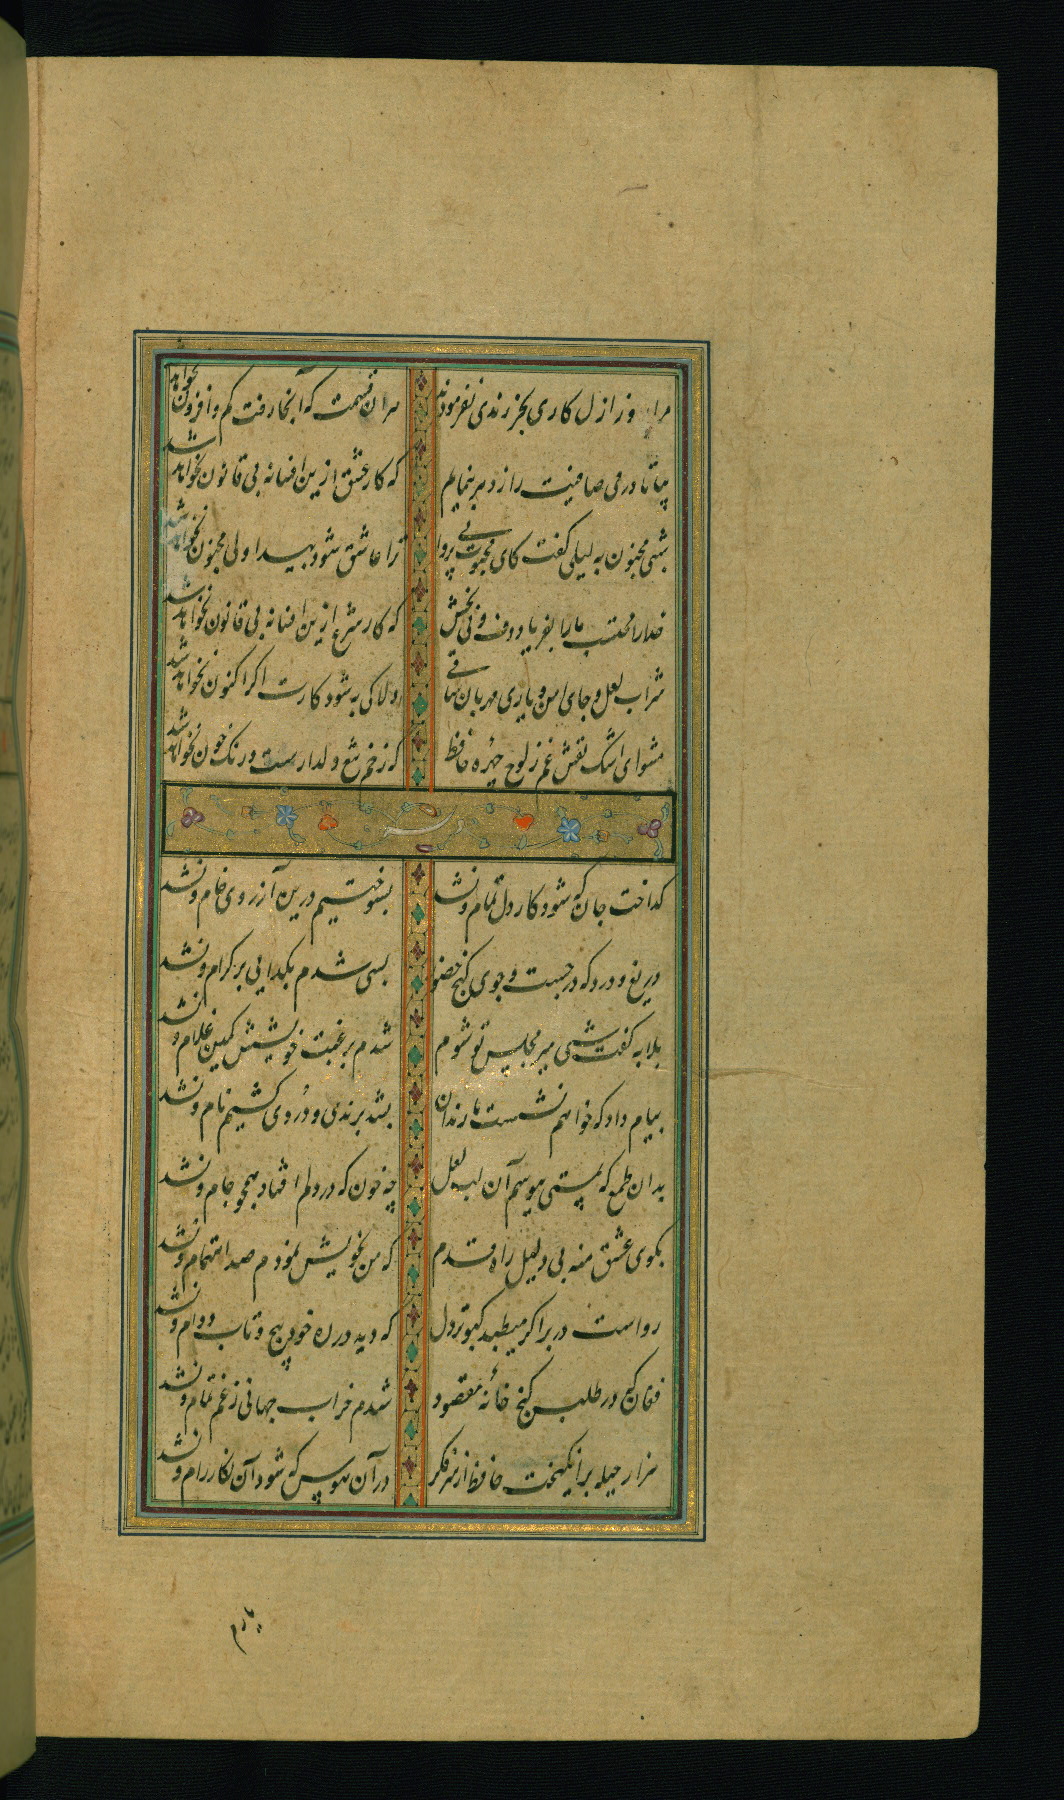 مرا روز ازل کاری بجز رندی نفرمودند هر آن قسمت که آنجا رفت کم و افزون نخواهد شد
بیا تا در می صافیت راز دهر بنمایم که کار عشق ازین افسانه بی قانون نخواهد شد
شبی مجنون به لیلی گفت کای محبوب بی پروا ترا عاشق شود پیدا ولی مجنون نخواهد شد
خدا را محتسب ما را بفریاد دف و نی بخش که کار شرع ازین افسانه بی قانون نخواهد شد
شراب لعل و جای امن و یاری مهربان ساقی دلا کی به شود کارت اگر اکنون نخواهد شد
مشوی ای اشک نقش غم ز لوح چهره حافظ که زخم تیغ دلدارست و رنگ خون نخواهد شد
گداخت جان که شود کار دل تمام و نشد بسوختیم درین آرزوی خام و نشد
دریغ و درد که در جست و جوی گنج حضور بسی شدم بگدایی بر کرام و نشد
بلابه گفت شبی میر مجلس تو شوم شدم برغبت خویشش کمین غلام و نشد
پیام داد که خواهم نشست با رندان بشد برندی و دردی کشیم نام و نشد
بدان طمع که بمستی ببوسم آن لب لعل چه خون که در دلم افتاد همچو جام و نشد
بکوی عشق منه بی دلیل راه قدم که من بخویش نمودم صد اهتمام و نشد
رواست در بر اگر میطپد کبوتر دل که دید در ره خود پیچ و تاب دام و نشد
فغان که در طلب گنج خانهٔ مقصود شدم خراب جهانی ز غم تمام و نشد
هزار حیله برانگیخت حافظ از سر فکر در آن هوس که شود آن نگار رام و نشد